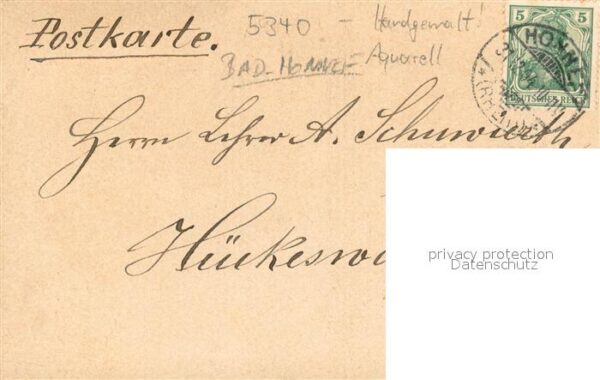 5340 – Handgemalt!
Postkarte.
BAD-HONNEF Aquarell
5 5
DEUTSCHES REICH
HONNEF
(RHEIN)
Herrn Lehrer A. Schuwirth
Hückeswa
privacy protection
Datenschutz